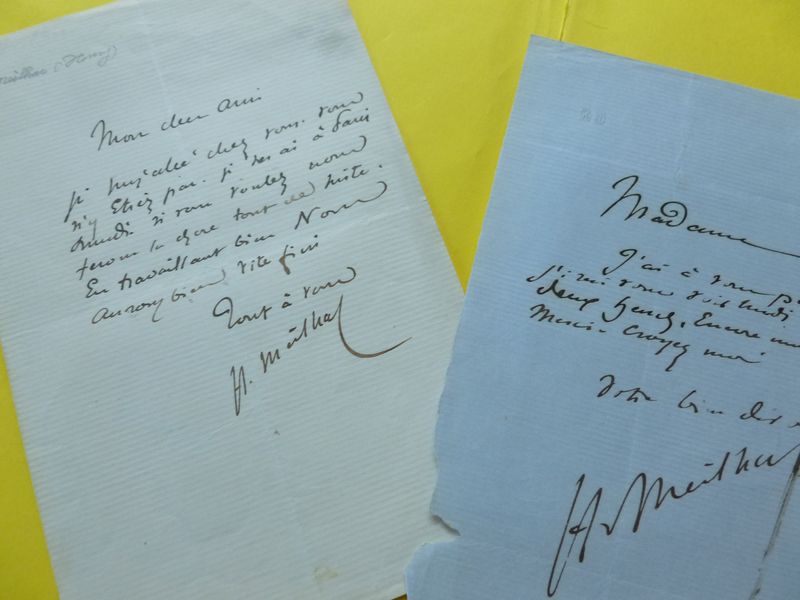 Meilhac (Henry)
Mon cher ami
je suis allé chez vous. vous
n'y étiez pas. je serai à Paris
lundi si vous voulez nous
ferons la chose tout de suite.
En travaillant bien Nous
aurons bien vite fini
Tout à vous
H. Meilhac
Madame
J'ai à vous
lundi
deux heures. Encore
Merci. Croyez moi
Votre bien dé
H. Meilhac